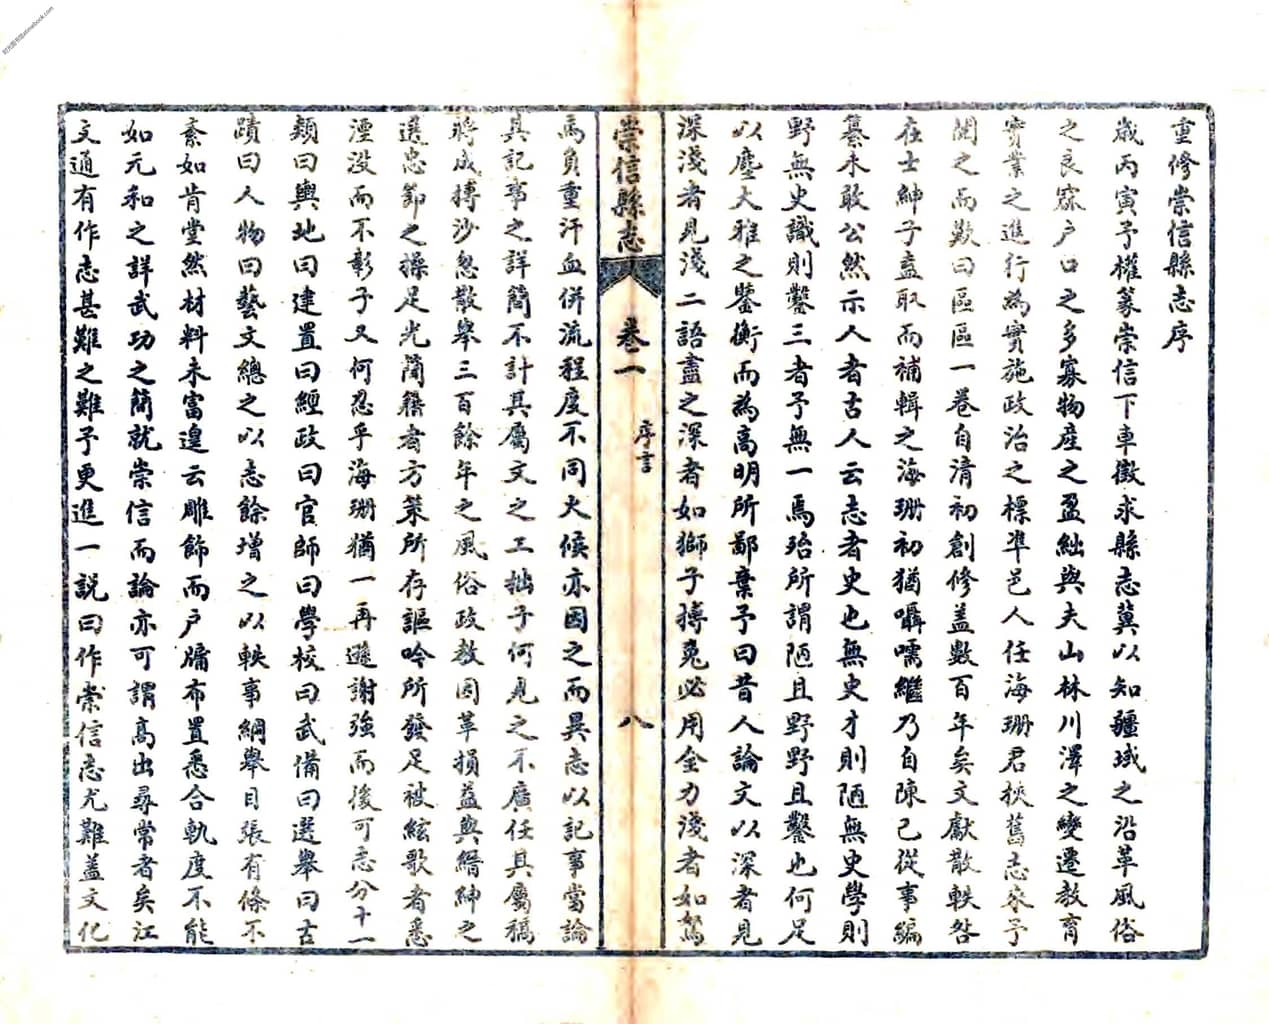 重修崇信縣志序
歲丙寅予權篆崇信下車徵求縣志冀以知疆域之沿革風俗
之良窳户口之多寡物產之盈絀與夫山林川澤之變遷教育
實業之進行為實施政治之標準邑人任海珊君挾舊志來予
閱之而歎曰區區一卷自清初創修盖數百年矣文獻散軼咎
在士紳子盍取而補輯之海珊初猶囁嚅繼乃自陳已從事編
纂未敢公然示人者古人云志者史也無史才則陋無史學則
野無史識則鑿三者予無一焉殆所謂陋且野野且鑿也何足
以塵大雅之鑒衡而為高明所鄙棄予曰昔人論文以深者見
深淺者見淺二語盡之深者如獅子搏兔必用全力淺者如駑
崇信縣志 卷一 序言 八
馬負重汗血併流程度不同火候亦因之而異志以記事當論
其記事之詳簡不計其屬文之工拙子何見之不廣任其屬稿
將成摶沙忽散舉三百餘年之風俗政教因革損益與縉紳之
選忠節之操足光簡籙者方策所存謳吟所發足被絃歌者悉
湮沒而不彰子又何忍乎海珊猶一再遜謝強而後可志分十一
類曰輿地曰建置曰經政曰官師曰學校曰武備曰選舉曰古
蹟曰人物曰藝文總之以志餘增之以軼事綱舉目張有條不
紊如肯堂然材料未富遑云雕飾而户牖布置悉合軌度不能
如元和之詳武功之簡就崇信而論亦可謂高出尋常者矣江
文通有作志甚難之難予更進一説曰作崇信志尤難盖文化
时光图书馆atimebook.com